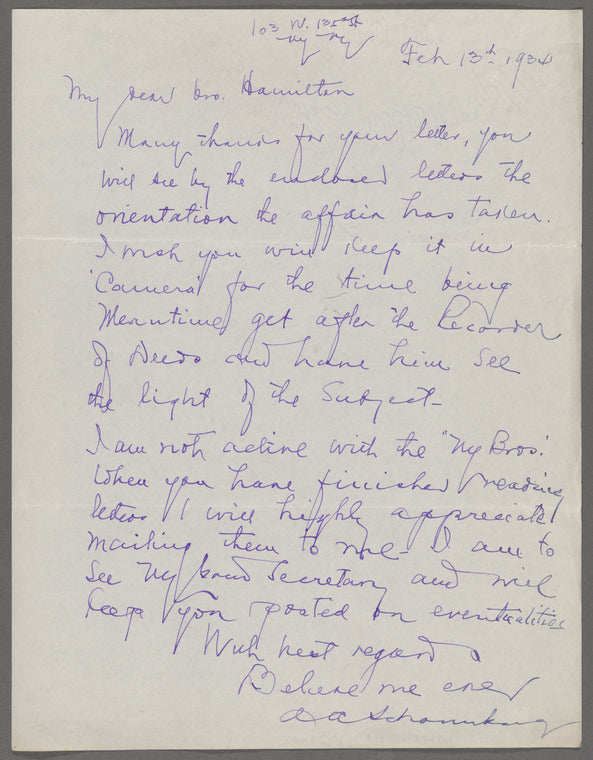 103 W. 135th St
NY NY
Feb 13th 1934
My dear bro. Hamilton
Many thanks for your letter, you
will see by the enclosed letters the
orientation the affair has taken.
I wish you will keep it in
'Camera' for the time being
Meantime, get after the Recorder
of Deeds and have him see
the light of the Subject-
I am not active with the "NY Bros.'
When you have finished reading
letters I will highly appreciate
mailing them to me- I am to
see NY Grand Secretary and will
keep you posted on eventualities
With best regards
Believe me ever
A A Schomburg